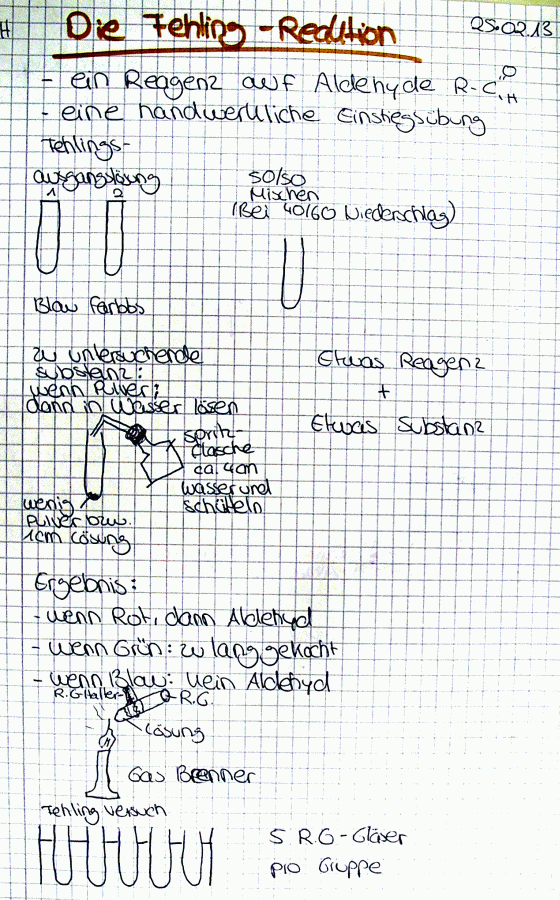 H
Die Fehling-Reaktion
25.02.13
- ein Reagenz auf Aldehyde R-C O H
- eine handwerkliche Einstiegsübung
Fehlings-
ausgangslösung
1 2
Blau farblos
50/50
Mischen
(Bei 40/60 Niederschlag)
zu untersuchende
substanz:
wenn Pulver:
dann in Wasser lösen
spritz-
flasche
ca. 4cm
wasser und
schütteln
wenig
Pulver bzw.
1cm Lösung
Etwas Reagenz
+
Etwas Substanz
Ergebnis:
- wenn Rot, dann Aldehyd
- wenn Grün: zu lang gekocht
- wenn Blau: kein Aldehyd
R.G Halter
R.G.
Lösung
Gas Brenner
Fehling Versuch
5 R.G-Gläser
pro Gruppe